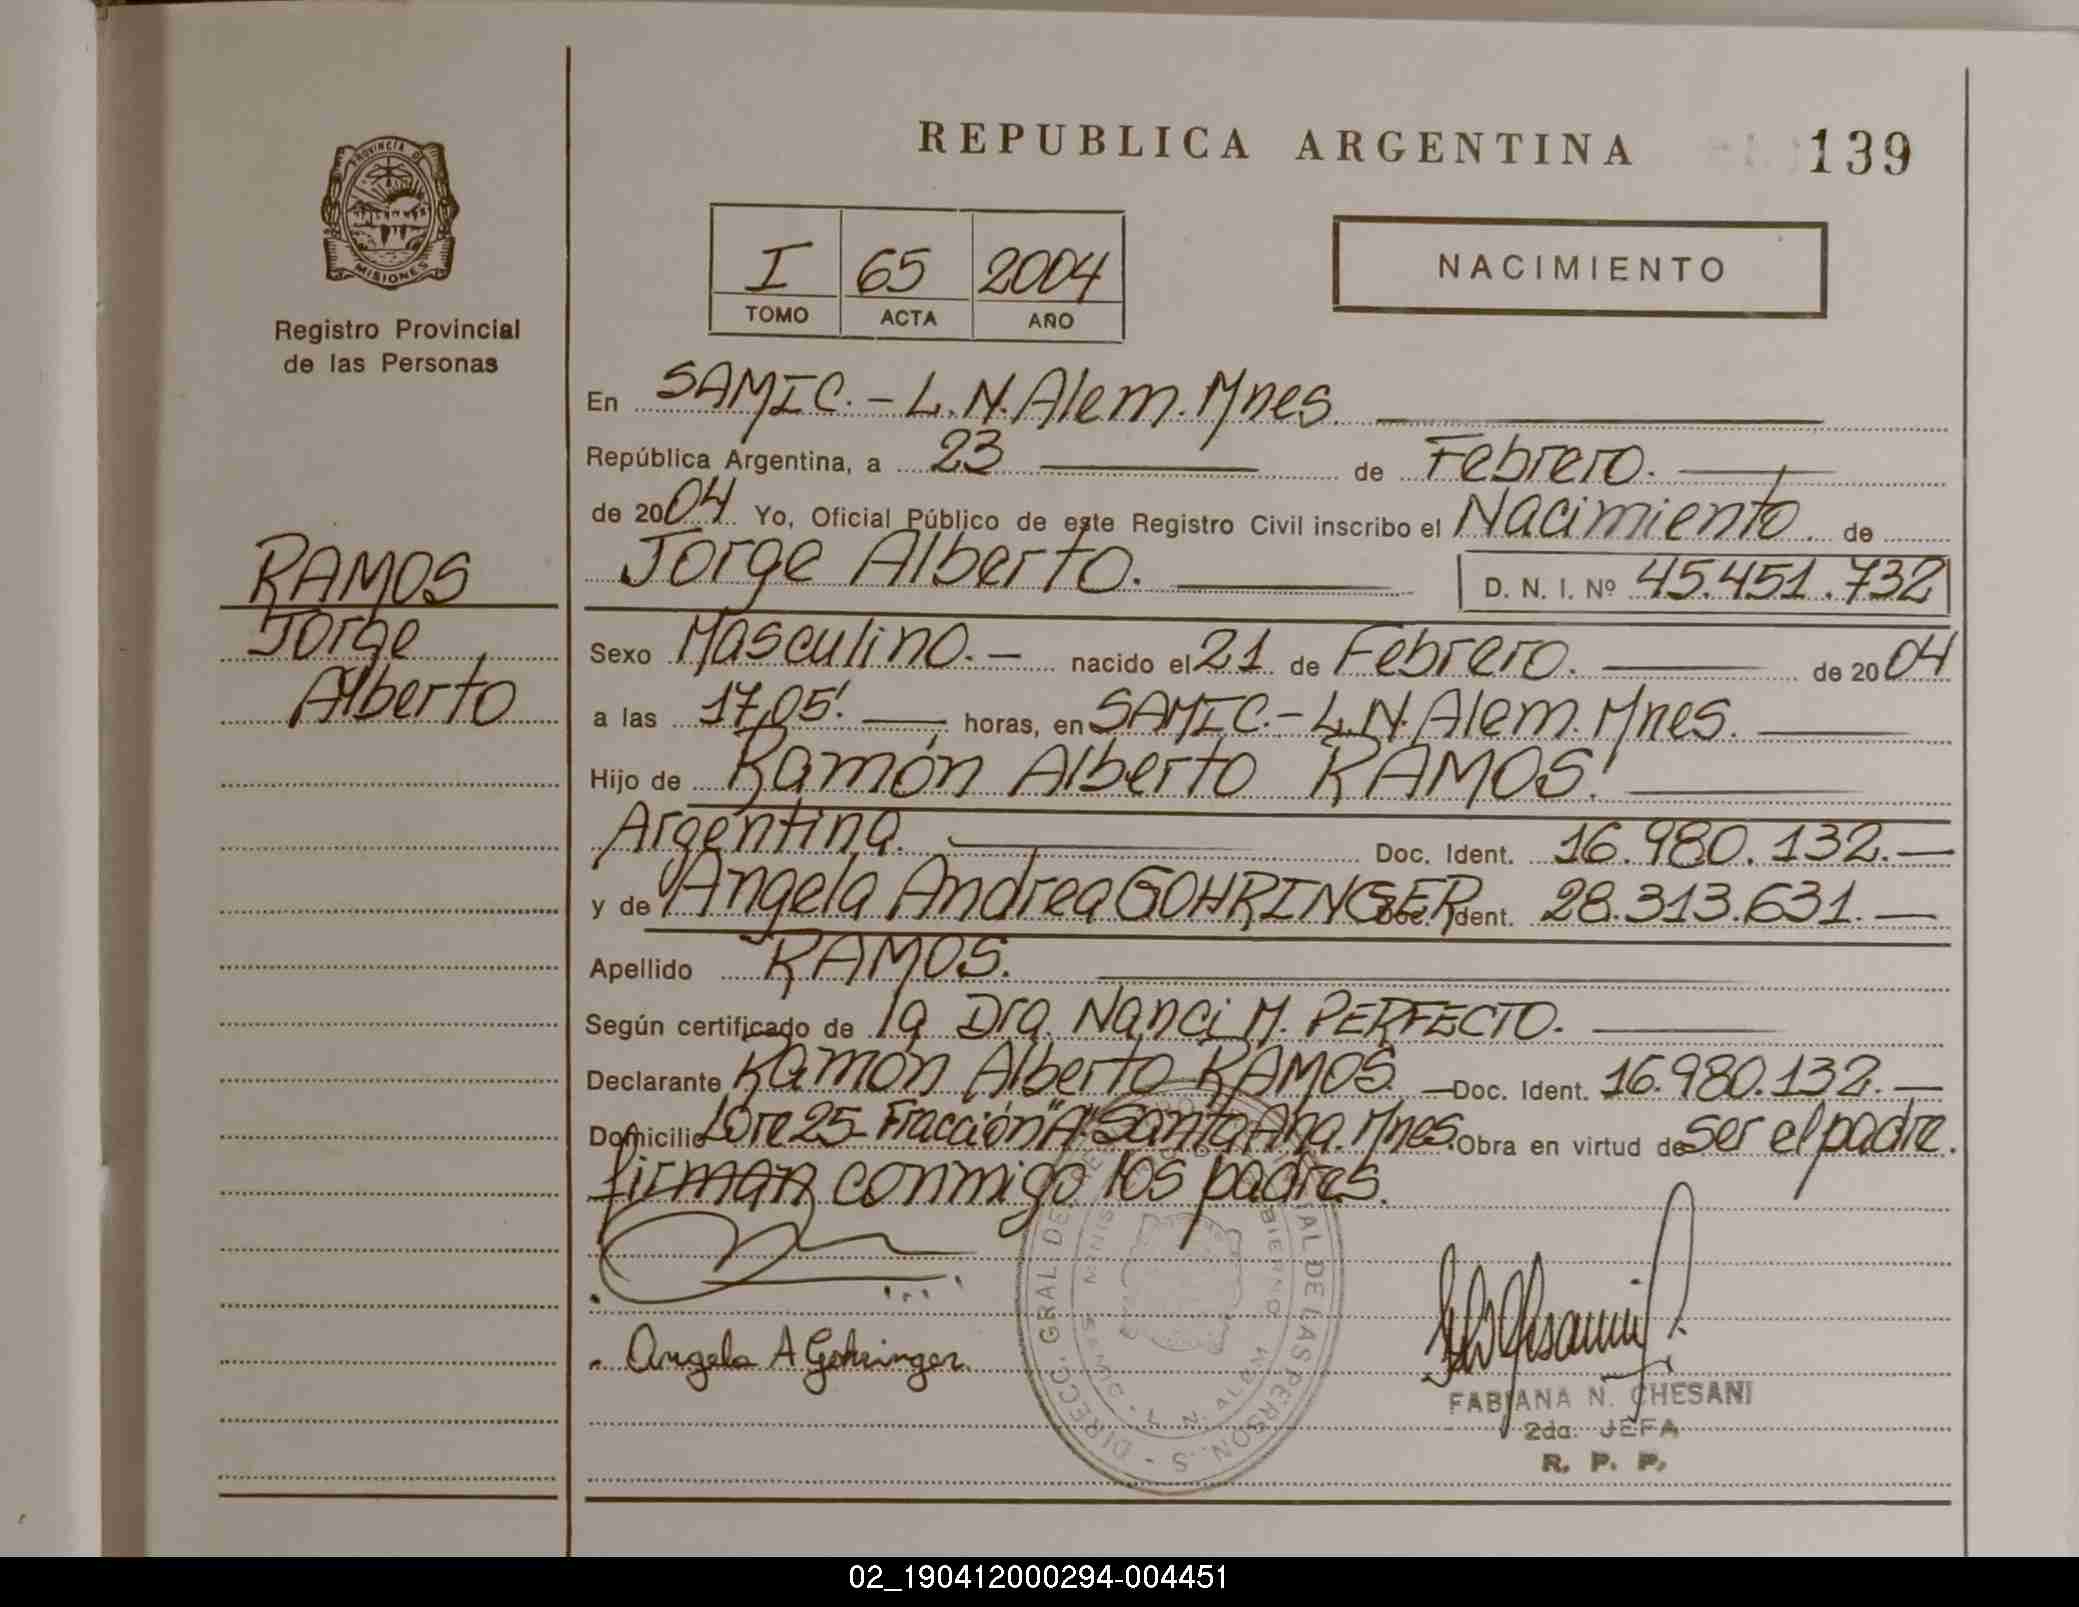 REPUBLICA ARGENTINA 139
PROVINCIA DE
MISIONES
Registro Provincial
de las Personas
I 65 2004
TOMO ACTA AÑO
NACIMIENTO
En SAMIC.- L.N.Alem.Mnes.
República Argentina, a 23 de Febrero.
de 2004 Yo, Oficial Público de este Registro Civil inscribo el Nacimiento de
Jorge Alberto. D. N. I. Nº 45.451.732
RAMOS
Jorge
Alberto
Sexo Masculino.- nacido el 21 de Febrero. de 2004
a las 17,05'. horas, en SAMIC.- L.N.Alem.Mnes.
Hijo de Ramón Alberto RAMOS.
Argentina. Doc. Ident. 16.980.132.-
y de Angela Andrea GOHRINGER Doc. Ident. 28.313.631.-
Apellido RAMOS.
Según certificado de la Dra. Nanci M. PERFECTO.
Declarante Ramón Alberto RAMOS. - Doc. Ident. 16.980.132.-
Domicilio Lote 25- Fracción "A" Santa Ana. Mnes. Obra en virtud de ser el padre.
firman conmigo los padres.
Angela A Gohringer
DIRECC. GRAL DE AL DE LAS PERSON.S
L. N. ALEM
FABIANA N. CHESANI
2da. JEFA
R. P. P.
02_190412000294-004451